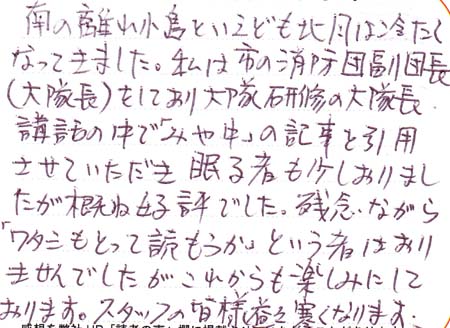 南の離れ小島といえども北風は冷たく
なってきました。私は市の消防団副団長
(大隊長)をしており大隊研修の大隊長
講話の中で「みや中」の記事を引用
させていただき 眠る者も少しおりまし
たが概ね好評でした。残念ながら
「ワタシもとって読もうか」という者はおり
ませんでしたがこれからも楽しみにして
おります。スタッフの皆様益々寒くなります